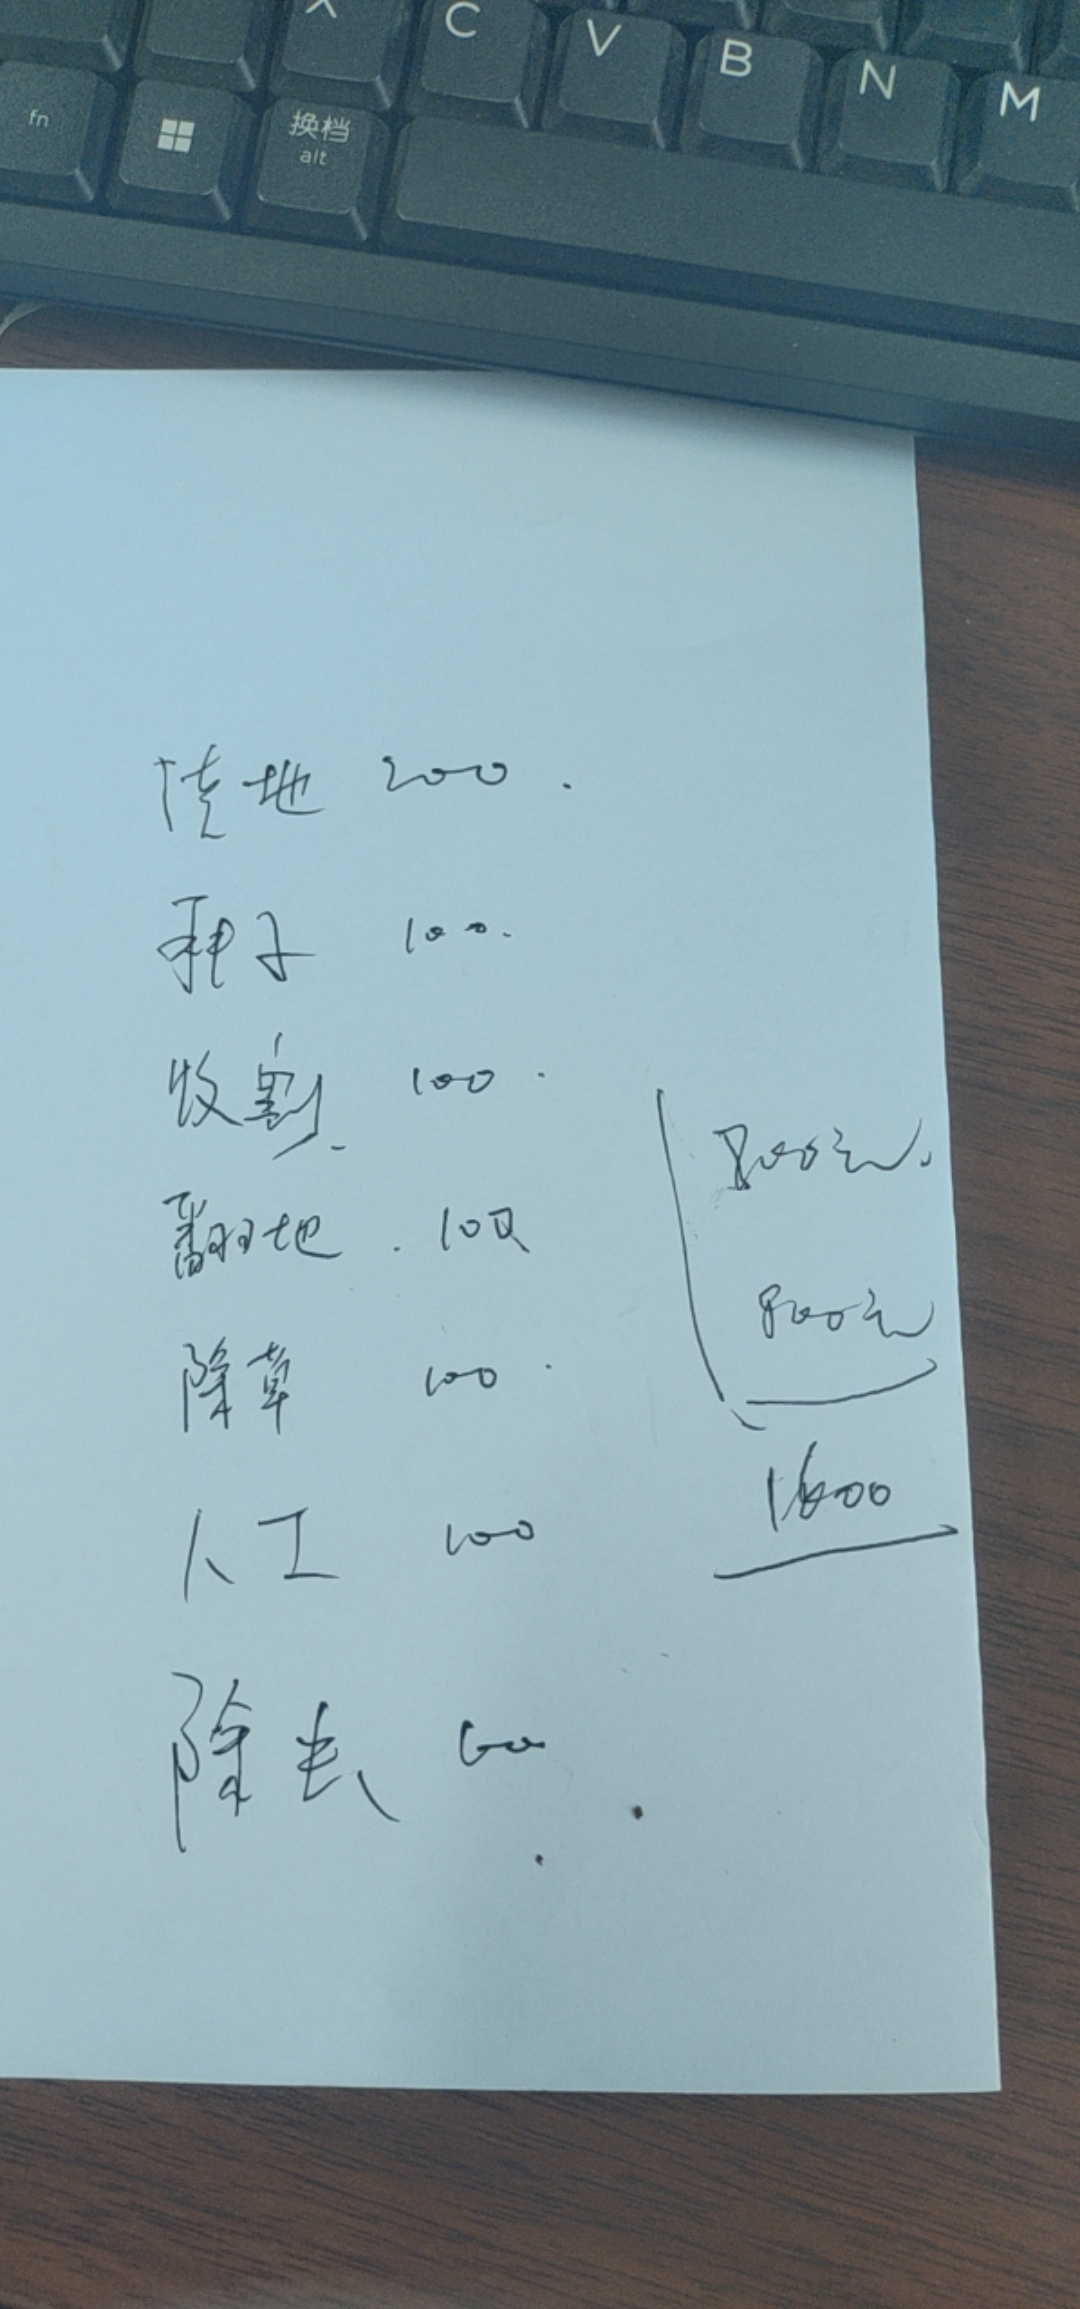 X C V B N M
fn 换档 alt
地 200.
种子 100.
收割 100.
翻地. 100
除草 100.
人工 100
除虫 100
800元.
800元
1600